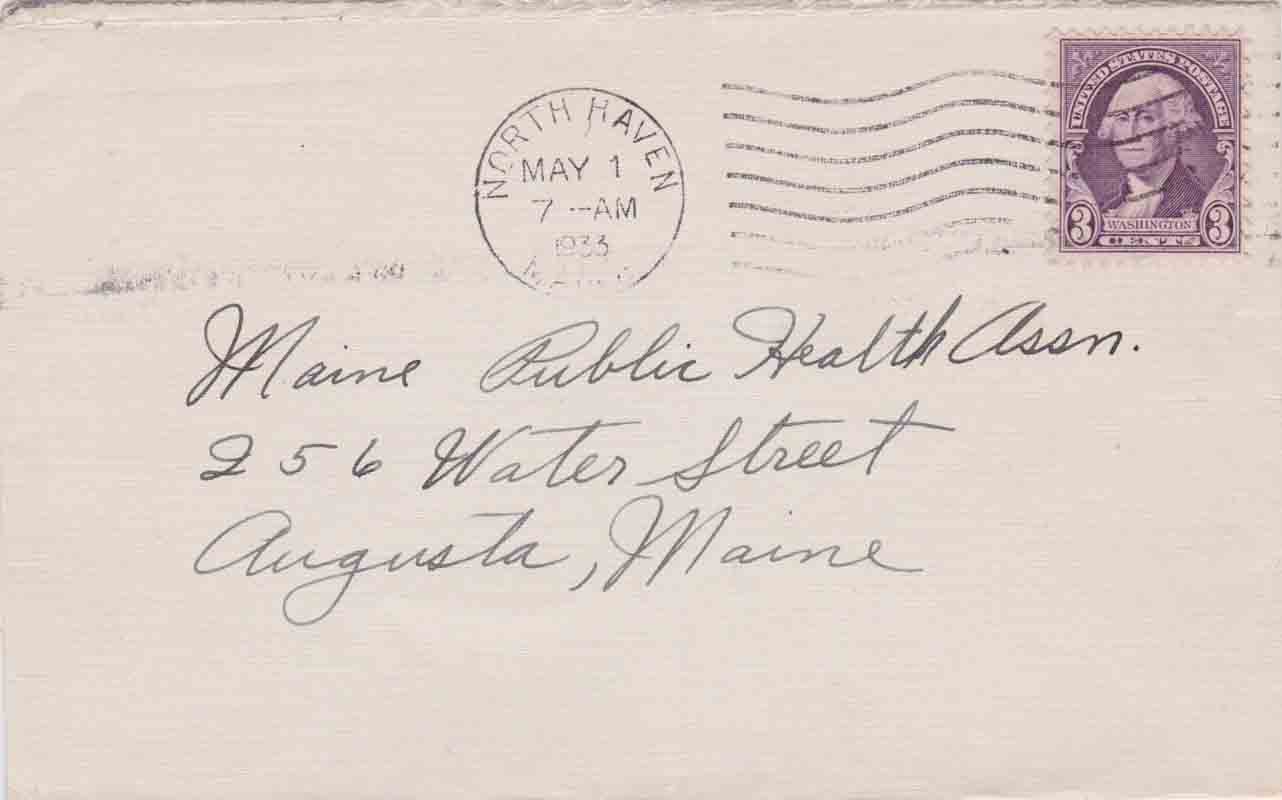 NORTH HAVEN
MAY 1
7 --AM
1933
UNITED STATES POSTAGE
3 WASHINGTON 3
CENTS
Maine Public Health Assn.
256 Water Street
Augusta, Maine